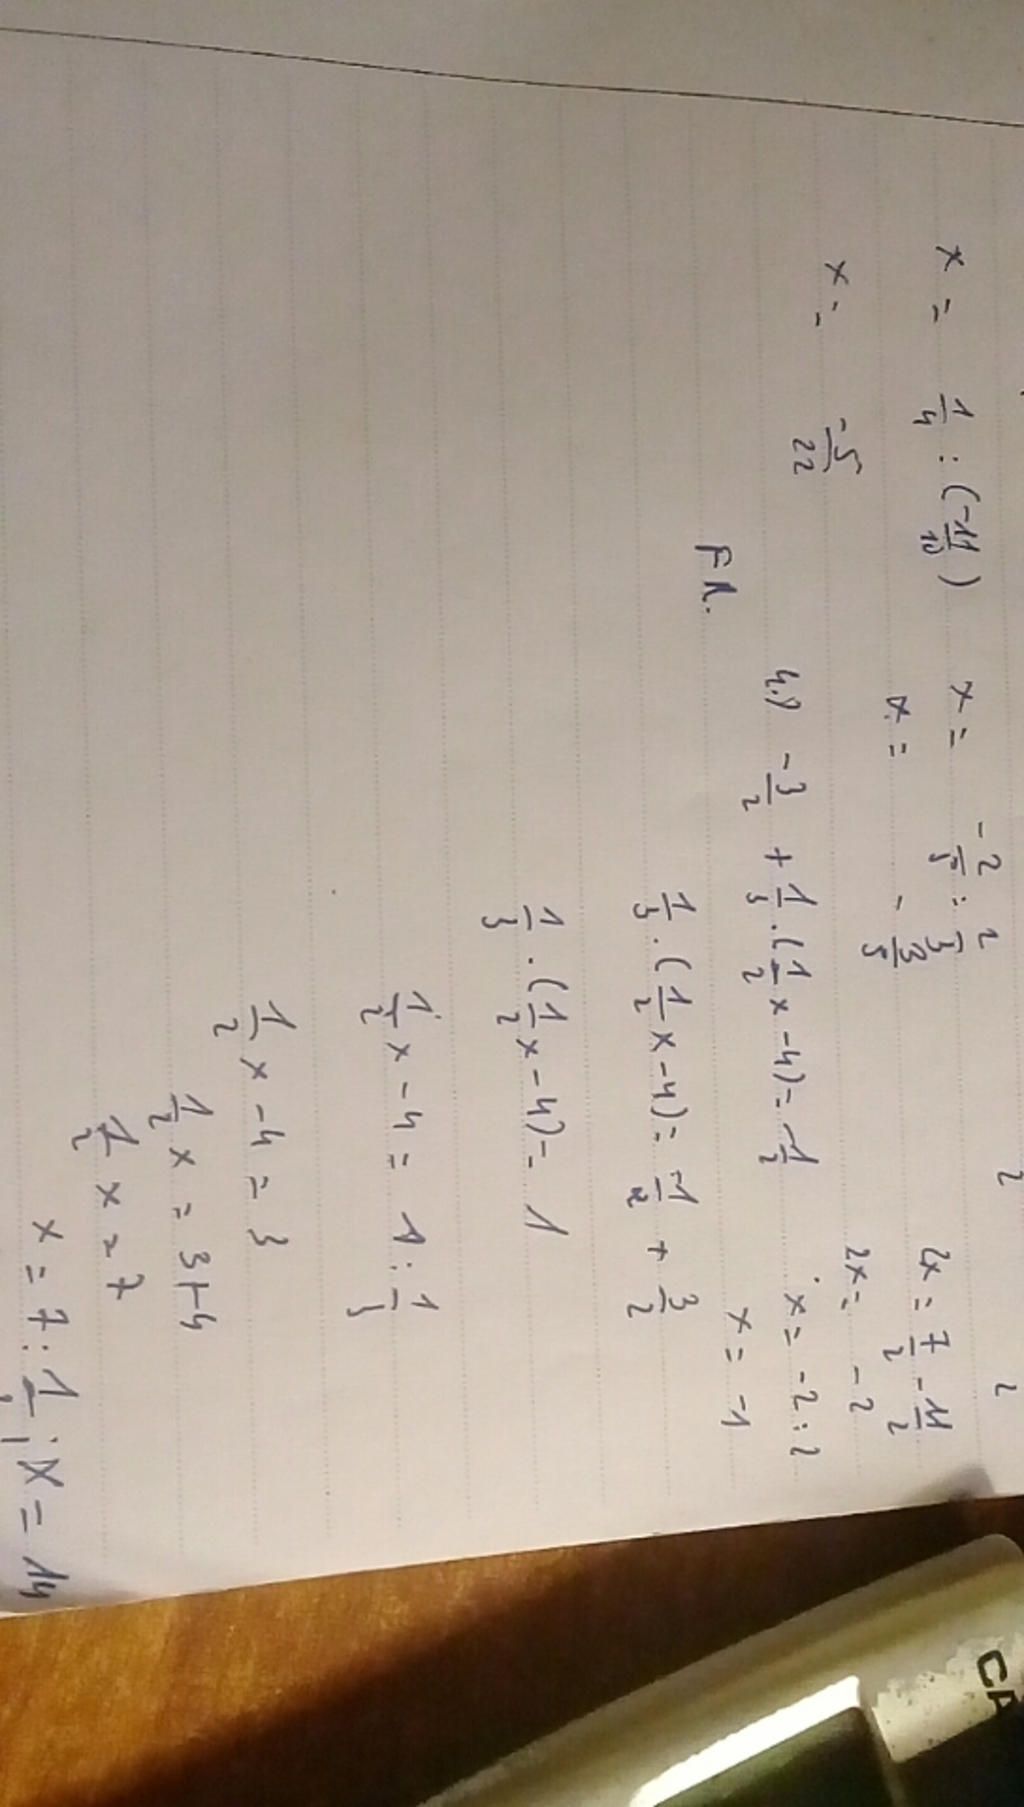 x = 1/4 : (-11/10)
x = -5/22
x = -2/5 : 2/3
x = -3/5
2x = 7/2 - 11/2
2x = -2
x = -2 : 2
x = -1
4.) -3/2 + 1/3 · (1/2 x - 4) = -1/2
1/3 · (1/2 x - 4) = -1/2 + 3/2
1/3 · (1/2 x - 4) = 1
1/2 x - 4 = 1 : 1/3
1/2 x - 4 = 3
1/2 x = 3 + 4
1/2 x = 7
x = 7 : 1/2 ; x = 14